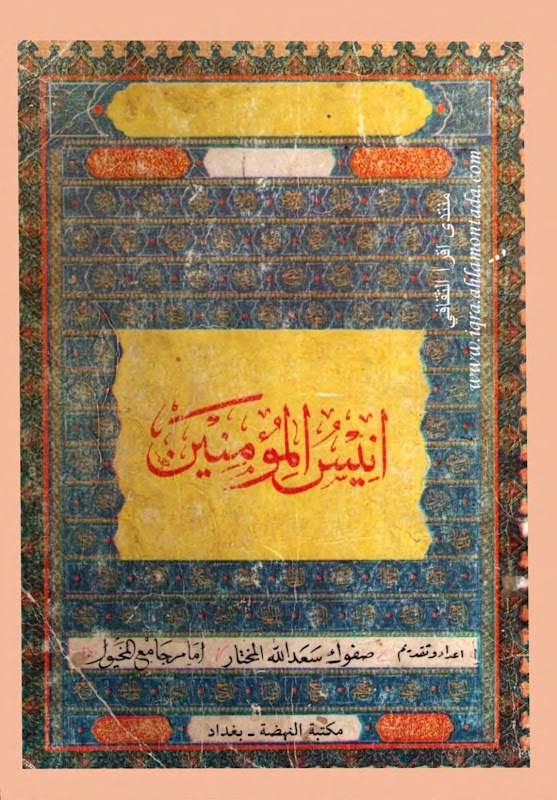 منتدى اقرأ الثقافي
www.iqra.ahlamontada.com
انيسُ المؤمِنِين
اعداد وتقديم صفوك سَعَد الله المختار امام جَامِع المخيول
مكتبة النهضة ـ بغداد